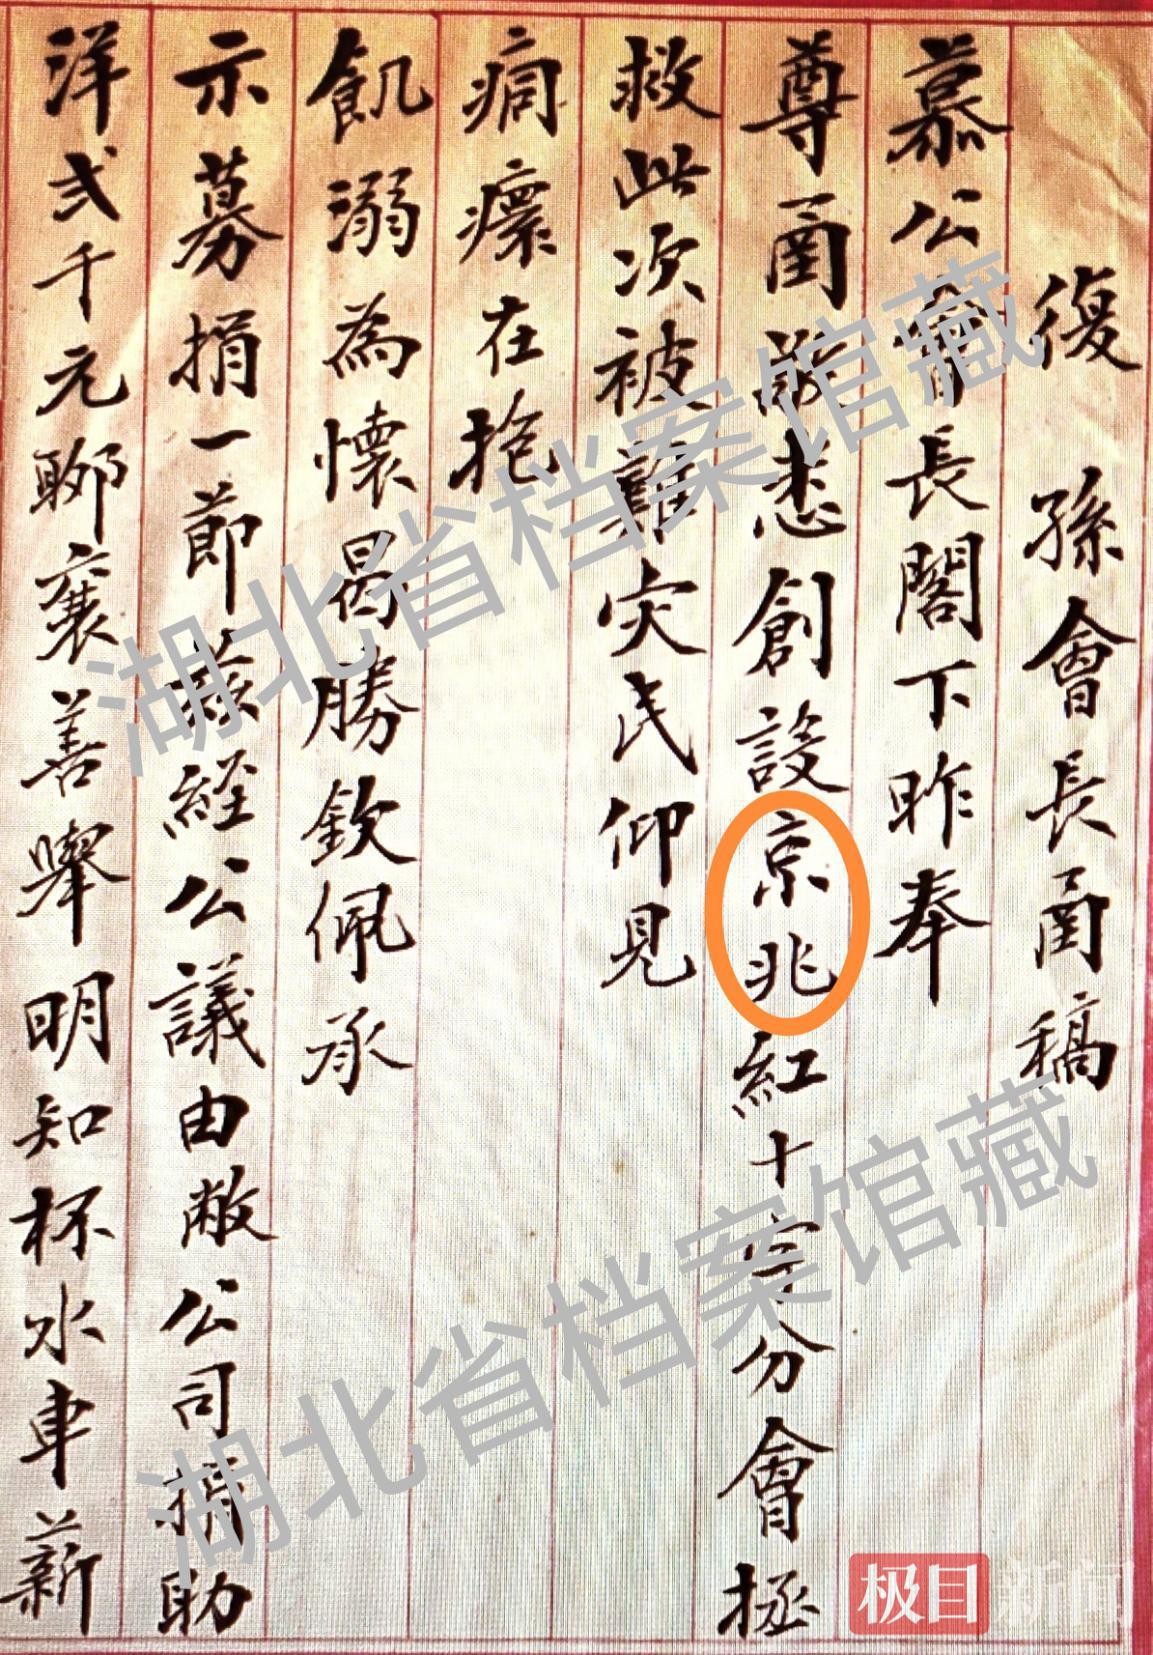 復孫會長函稿
慕公會長閣下昨奉
尊函敬悉創設京兆紅十字分會拯
救此次被難灾民仰見
痌瘝在抱
飢溺為懷曷勝欽佩承
示募捐一節茲経公議由敝公司捐助
洋弍千元聊襄善舉明知杯水車薪
湖北省档案馆藏
湖北省档案馆藏
极目新闻